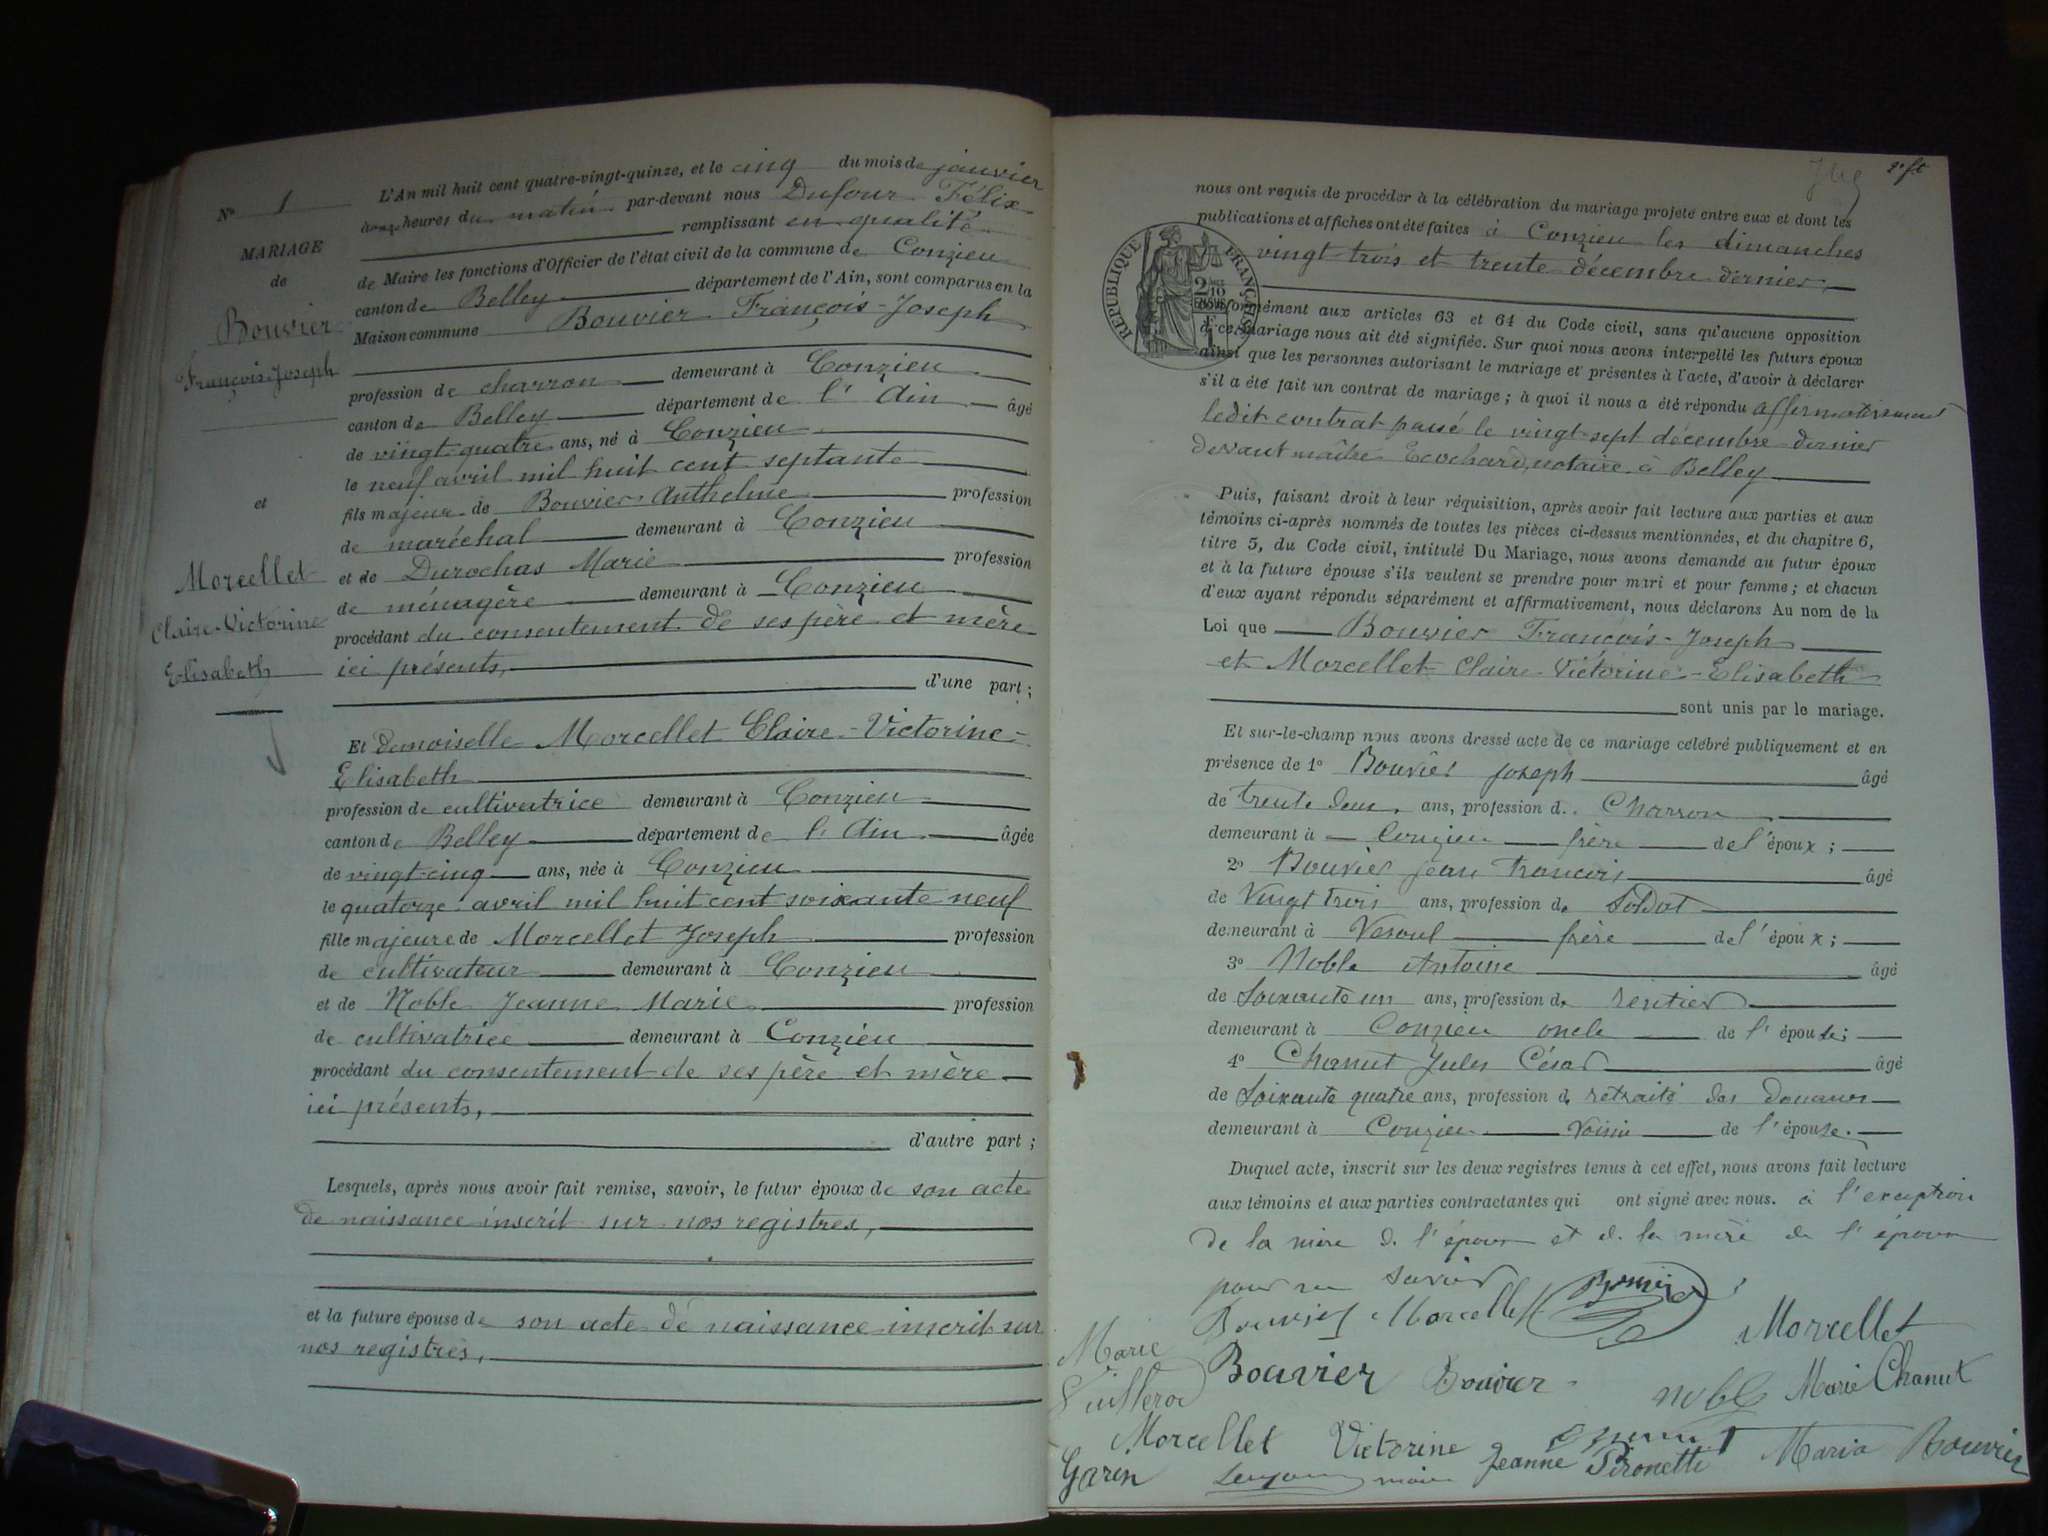 N° 1
MARIAGE
de
Bouvier
François-Joseph
et
Morcellet
Claire-Victorine
Elisabeth
L'An mil huit cent quatre-vingt-quinze, et le cinq du mois de janvier
à onze heures du matin par-devant nous Dufour Félix
remplissant en qualité
de Maire les fonctions d'Officier de l'état civil de la commune de Conzieu
canton de Belley département de l'Ain, sont comparus en la
Maison commune Bouvier François-Joseph
profession de charron demeurant à Conzieu
canton de Belley département de l'Ain âgé
de vingt-quatre ans, né à Conzieu
le neuf avril mil huit cent septante
fils majeur de Bouvier Anthelme profession
de maréchal demeurant à Conzieu
et de Durochas Marie profession
de ménagère demeurant à Conzieu
procédant du consentement de ses père et mère
ici présents,
d'une part ;
Et demoiselle Morcellet Claire-Victorine-
Elisabeth
profession de cultivatrice demeurant à Conzieu
canton de Belley département de l'Ain âgée
de vingt-cinq ans, née à Conzieu
le quatorze avril mil huit cent soixante neuf
fille majeure de Morcellet Joseph profession
de cultivateur demeurant à Conzieu
et de Noble Jeanne Marie profession
de cultivatrice demeurant à Conzieu
procédant du consentement de ses père et mère
ici présents,
d'autre part ;
Lesquels, après nous avoir fait remise, savoir, le futur époux de son acte
de naissance inscrit sur nos registres,
et la future épouse de son acte de naissance inscrit sur
nos registres,
2e ft
nous ont requis de procéder à la célébration du mariage projeté entre eux et dont les
publications et affiches ont été faites à Conzieu les dimanches
vingt-trois et trente décembre dernier,
RÉPUBLIQUE FRANÇAISE
conformément aux articles 63 et 64 du Code civil, sans qu'aucune opposition
à ce mariage nous ait été signifiée. Sur quoi nous avons interpellé les futurs époux
ainsi que les personnes autorisant le mariage et présentes à l'acte, d'avoir à déclarer
s'il a été fait un contrat de mariage ; à quoi il nous a été répondu affirmativement
ledit contrat passé le vingt-sept décembre dernier
devant maître Ecochard, notaire à Belley
Puis, faisant droit à leur réquisition, après avoir fait lecture aux parties et aux
témoins ci-après nommés de toutes les pièces ci-dessus mentionnées, et du chapitre 6,
titre 5, du Code civil, intitulé Du Mariage, nous avons demandé au futur époux
et à la future épouse s'ils veulent se prendre pour mari et pour femme ; et chacun
d'eux ayant répondu séparément et affirmativement, nous déclarons Au nom de la
Loi que Bouvier François-Joseph
et Morcellet Claire-Victorine-Elisabeth
sont unis par le mariage.
Et sur-le-champ nous avons dressé acte de ce mariage célébré publiquement et en
présence de 1° Bouvier Joseph âgé
de trente deux ans, profession de Charron
demeurant à Conzieu frère de l'époux ;
2° Bouvier Jean François âgé
de Vingt trois ans, profession de Soldat
demeurant à Vesoul frère de l'époux ;
3° Noble Antoine âgé
de Soixante un ans, profession de rentier
demeurant à Conzieu oncle de l'épouse ;
4° Chanut Jules César âgé
de Soixante quatre ans, profession de retraité des Douanes
demeurant à Conzieu Voisin de l'épouse.
Duquel acte, inscrit sur les deux registres tenus à cet effet, nous avons fait lecture
aux témoins et aux parties contractantes qui ont signé avec nous. à l'exception
de la mère de l'époux et de la mère de l'épouse
pour ne savoir
Bouvier Morcellet Bouvier
Marie Morcellet
Bouvier Bouvier noble Marie Chanut
Morcellet Victorine Chanut Maria Bouvier
Garin maire Jeanne Pironetti